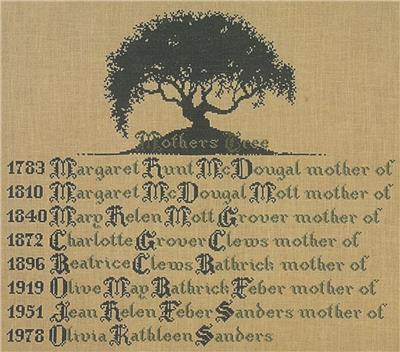 Mothers Tree
1783 Margaret Hunt McDougal mother of
1810 Margaret McDougal Mott mother of
1840 Mary Helen Mott Grover mother of
1872 Charlotte Grover Clews mother of
1896 Beatrice Clews Bathrick mother of
1919 Olive May Bathrick Feber mother of
1951 Jean Helen Feber Sanders mother of
1978 Olivia Kathleen Sanders